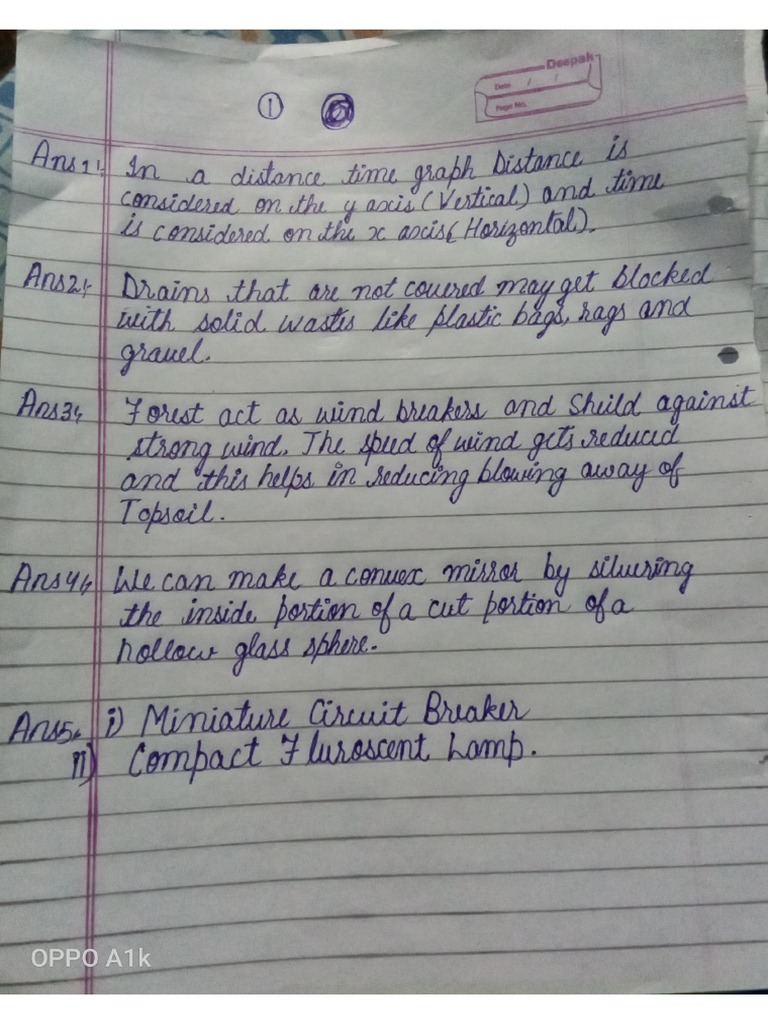 Deepak
Date / /
Page No.
①
Ans1 In a distance time graph Distance is
considered on the y axis (Vertical) and time
is considered on the x axis (Horizontal).
Ans2 Drains that are not covered may get blocked
with solid wastes like plastic bags, rags and
gravel.
Ans3 Forest act as wind breakers and Sheild against
strong wind. The speed of wind gets reduced
and this helps in reducing blowing away of
Topsoil.
Ans4 We can make a convex mirror by silvering
the inside portion of a cut portion of a
hollow glass sphere.
Ans5 i) Miniature Circuit Breaker
ii) Compact Fluroscent Lamp.
OPPO A1k